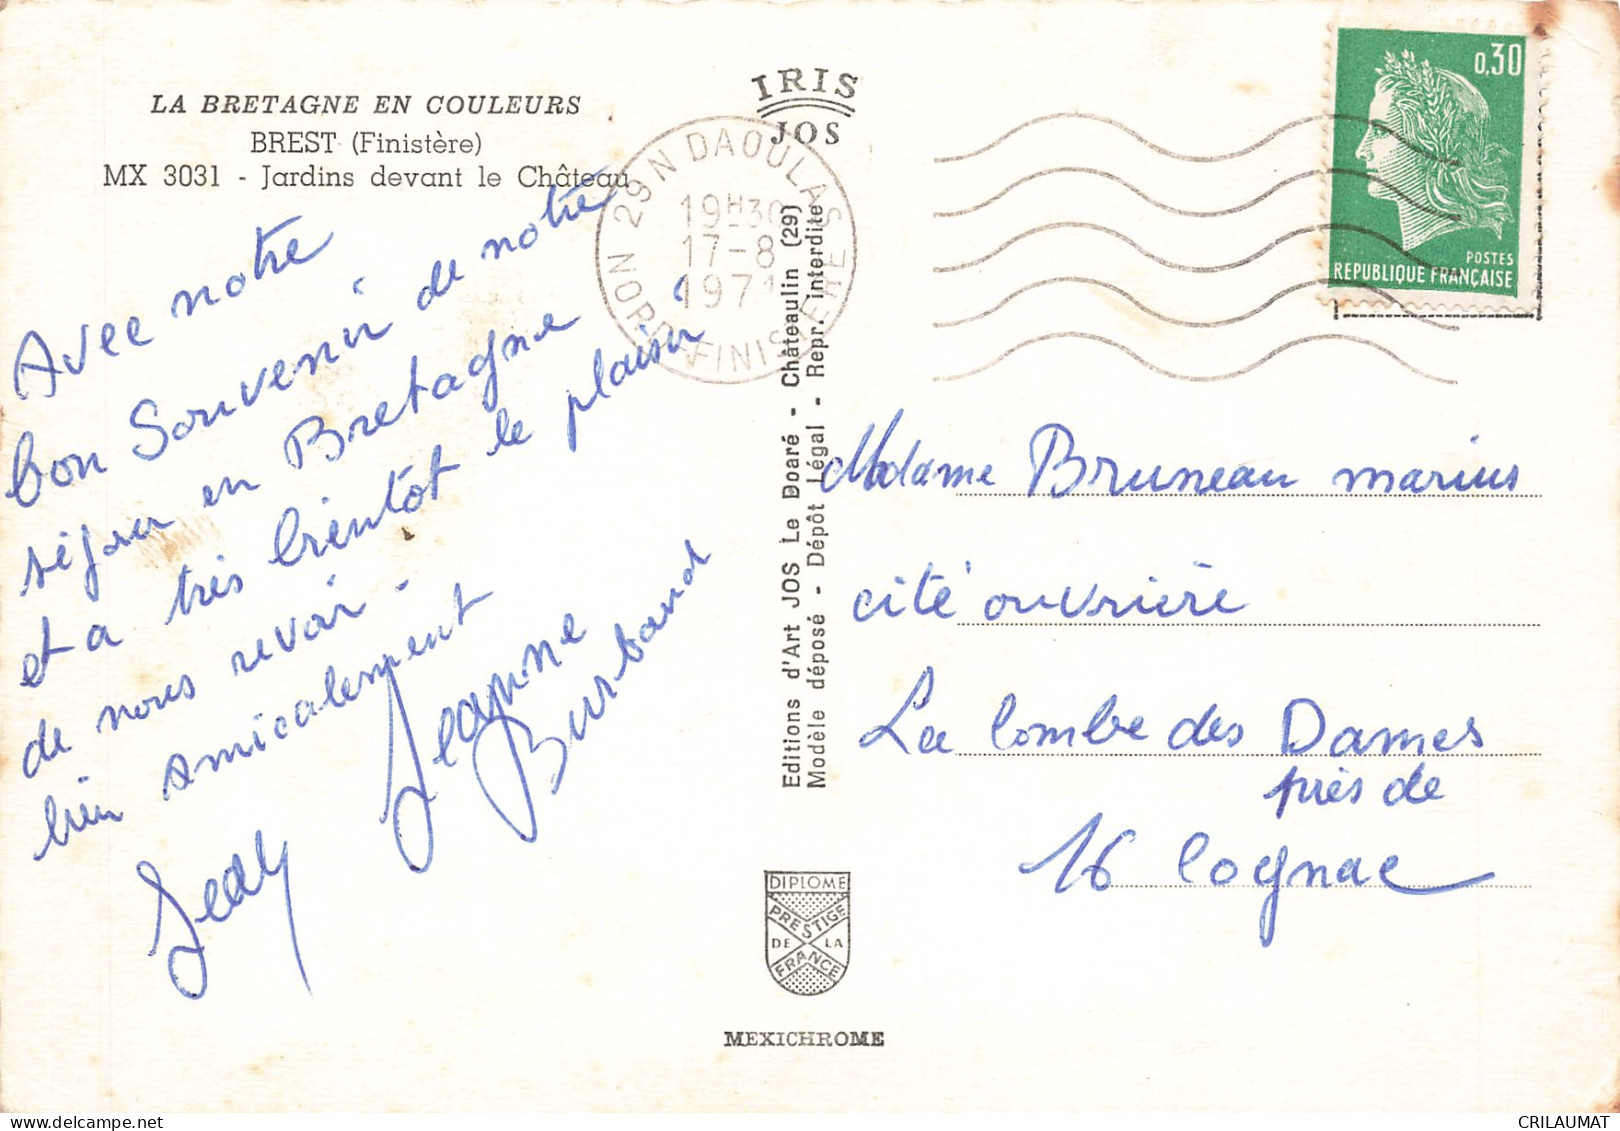 LA BRETAGNE EN COULEURS
BREST (Finistère)
MX 3031 - Jardins devant le Château
Avec notre
bon Souvenir de notre
séjour en Bretagne
et a très bientôt le plaisir
de nous revoir.
bien amicalement
Jeanne
Burband
IRIS
JOS
29 N DAOULAS
19H30
17-8
1971
NORD-FINISTERE
Editions d'Art JOS Le Doaré - Châteaulin (29)
Modèle déposé - Dépôt Légal - Repr. interdite
0,30
POSTES
REPUBLIQUE FRANÇAISE
Madame Bruneau marius
cité ouvrière
La Combe des Dames
près de
16 Cognac
DIPLOME
PRESTIGE
DE LA
FRANCE
MEXICHROME
CRILAUMAT